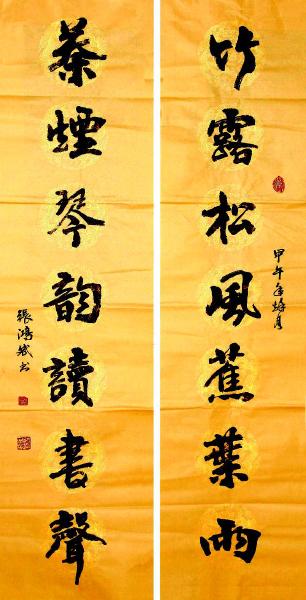 竹露松風蕉葉雨
甲午年梅月
茶煙琴韵讀書聲
張鴻斌書